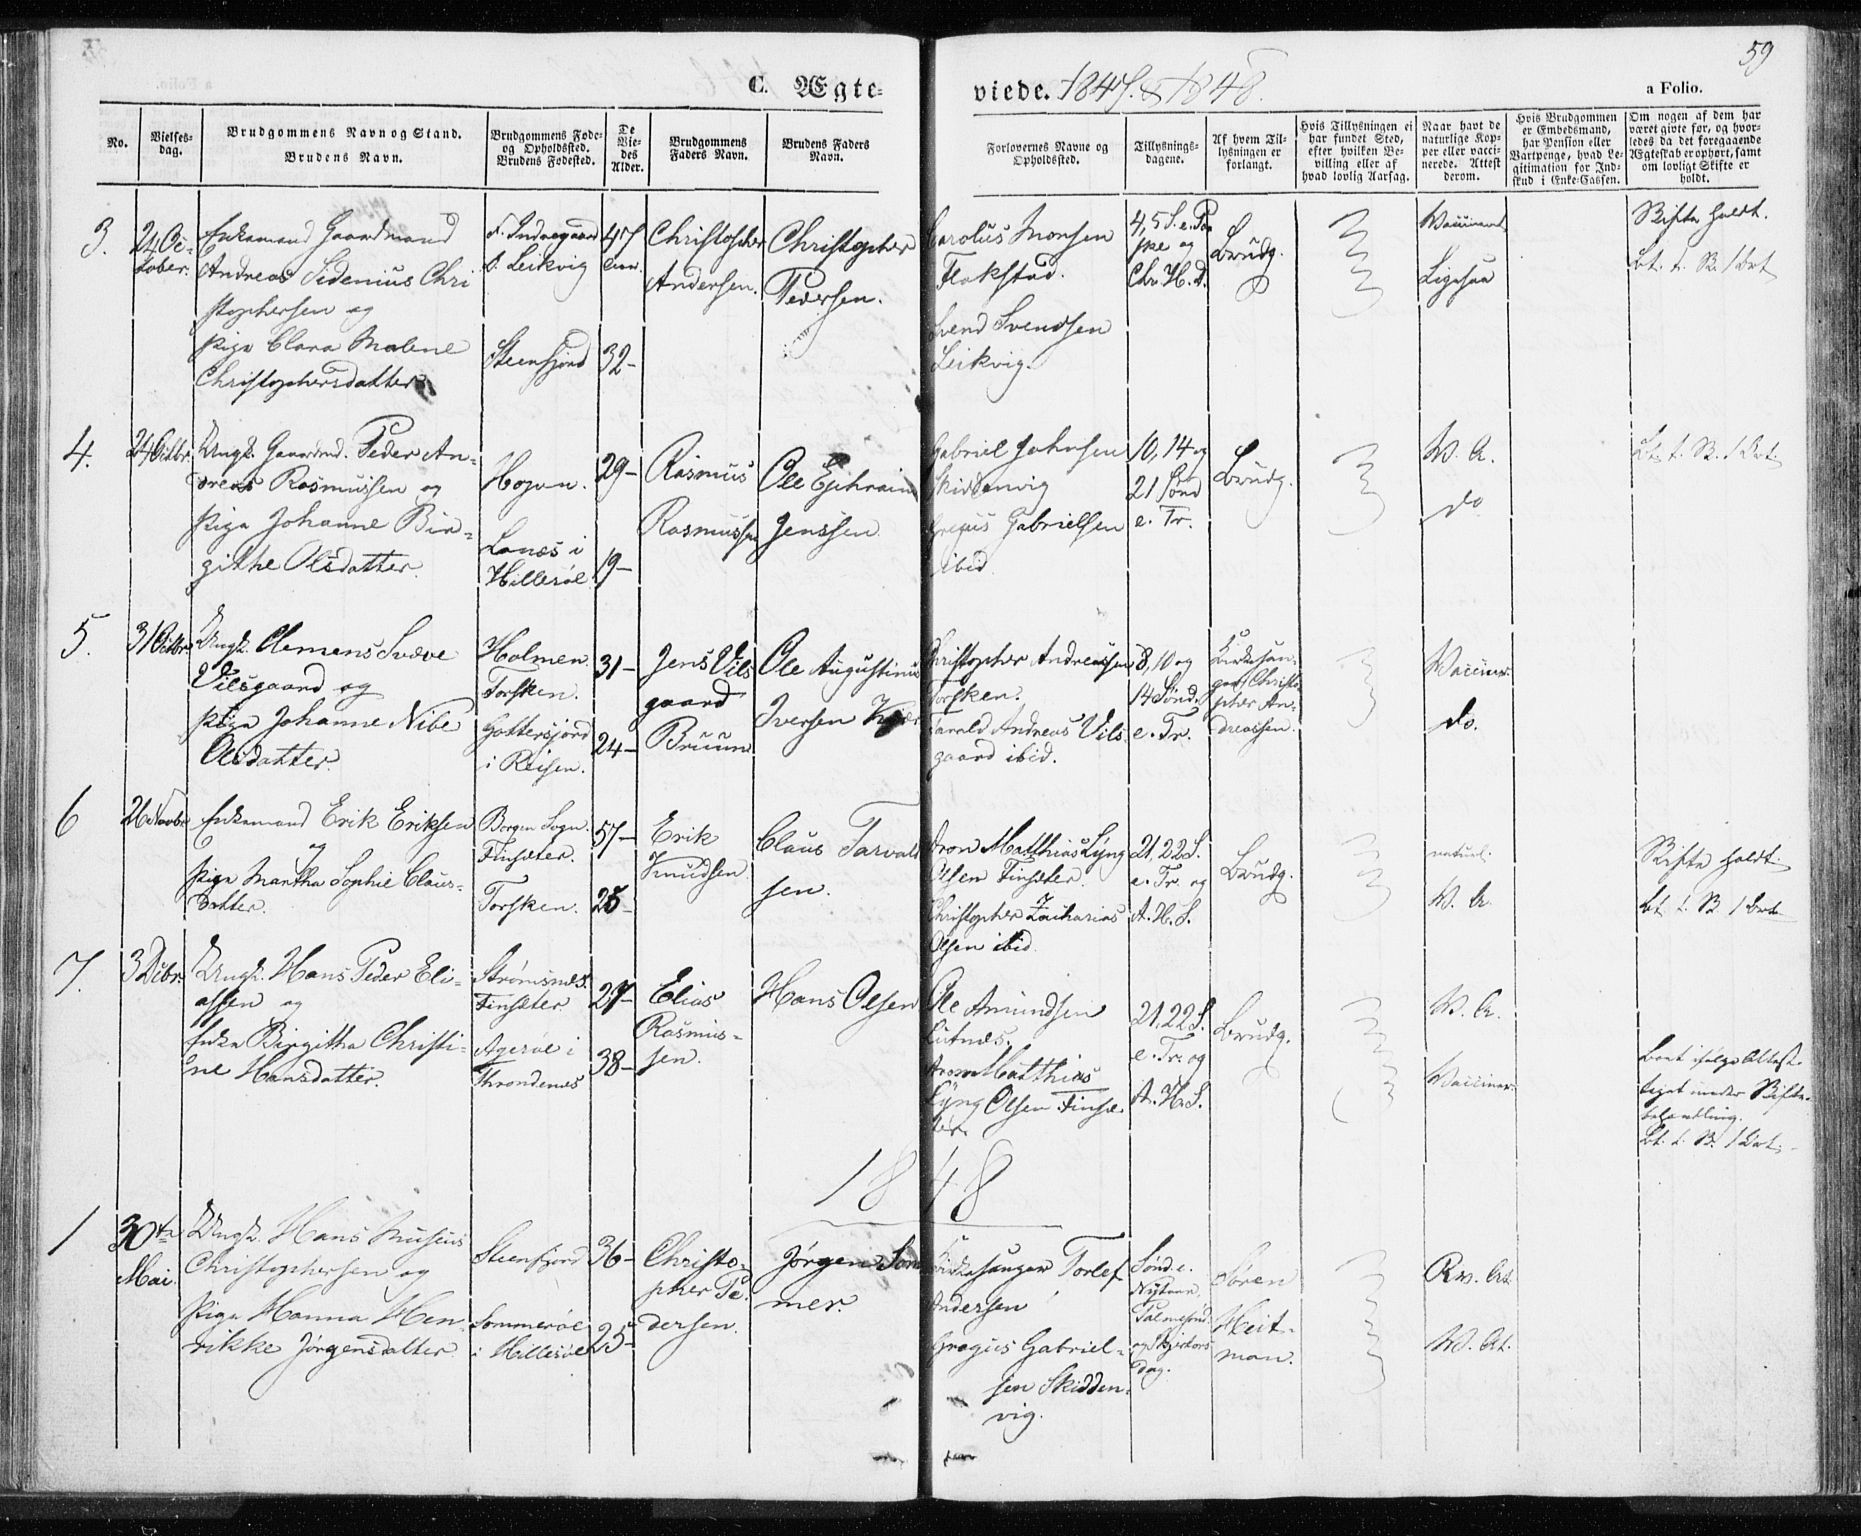 59
C. Ægte-
viede. 1847. & 1848.
a Folio.
No.
Vielses-
dag.
Brudgommens Navn og Stand.
Brudens Navn.
Brudgommens Føde-
og Opholdssted.
Brudens Fødested.
De
Vie-
des
Alder.
Brudgommens
Faders Navn.
Brudens Faders
Navn.
Forlovernes Navne og
Opholdssted.
Tillysnings-
dagene.
Af hvem Til-
lysningen er
forlangt.
Hvis Tillysningen ei
har fundet Sted,
efter hvilken Be-
villing eller af
hvad lovlig Aarsag.
Naar havt de
naturlige Kop-
per eller vacci-
nerede. Attest
derom.
Hvis Brudgommen
er Embedsmand,
har Pension eller
Vartpenge, hvad Le-
gitimation for Ind-
skud i Enke-Cassen.
Om nogen af dem har
været givte før, og hvor-
ledes da det foregaaende
Ægteskab er ophørt, samt
om lovligt Skifte er
holdt.
3.
24 Oc-
tober.
Enkemand Gaardmand
Andreas Sidenius Chri
stophersen og
Pige Clara Malene
Christophersdatter
f. Indregaard
b. Leikvig
Steensfjord
47
32-
Christopher
Andersen.
Christopher
Pedersen.
Carolus Monsen
Flakstad.
Svend Svendsen
Leikvig.
4, 5 S. e. Pa
ske og
Chr. H. D.
Brudg.
Ligesaa
Skifte holdt.
4.
24 Octbr.
Ungk. Gaardmd. Peder An-
dreas Rasmussen og
Pige Johanne Bir-
githe Olsdatter.
Lanes i
Hillesøe
29-
19-
Rasmus
Rasmussen
Ole Ephraim
Jenssen
Gabriel Johnsen
Skiddenvig
Gregus Gabrielsen
ibid
10, 14 og
21 Sønd
e. Tr.
Brudg.
V. A.
do
5.
31 Octbr.
Ungk. Clemens Svave
Vilsgaard og
Pige Johanne Nibe
Olsdatter.
Holmen
Torsken.
Gottersjord
i Reisen.
31-
24-
Jens Vils
gaard
Bruun
Ole Augustinus
Iversen Kjær
Christopher Andreassen
Torsken.
Tarald Andreas Vils-
gaard ibid.
8, 10 og
14 Sønd.
e. Tr.
Kirkesan-
ger Christo-
pher An-
dreassen.
Vacciner.
do.
6
26 Novbr.
Enkemand Erik Eriksen
og
Pige Martha Sophie Claus-
datter.
Borgen Sogn.
Finsæter.
Torsken.
57-
25-
Erik
Knudsen
Claus Tarald
sen.
Aron Matthias Lyng
Olsen Finsæter.
Christopher Zacharias
Olsen ibid.
21, 22 S.
e. Tr. og
A. H. S.
Brudg.
naturl.
V. A.
Skifte holdt.
7.
3 Dcbr.
Ungk. Hans Peder Eli-
assen og
Enke Birgitha Christi-
ne Hansdatter.
Strømsnæs.
Finsæter
Agerøe i
Throndenæs
27-
38-
Elias
Rasmus-
sen.
Hans Olsen
Ole Amundsen
Lutnæs.
Aron Matthias
Lyng Olsen Finsæ-
ter.
21, 22 S.
e. Tr. og
A. H. S.
Brudg.
V. A.
Vacciner.
Boet ifølge Attest
taget under Skifte-
behandling.
1848
1
30te
Mai.
Ungk. Hans Museus
Christophersen og
Pige Hanna Hen
rikke Jørgensdatter.
Steensfjord
Sommerøe
i Hillesøe
36-
25-
Christo-
pher Pe-
dersen.
Jørgen Som
mer.
Kirkesanger Torlef
Andersen
Gregus Gabriel-
sen Skidden-
vig.
Sønd. e.
Nytaar,
Palmesønd.
og Skjertors
dag.
Søren
Heit-
man.
Rv. At.
V. At.